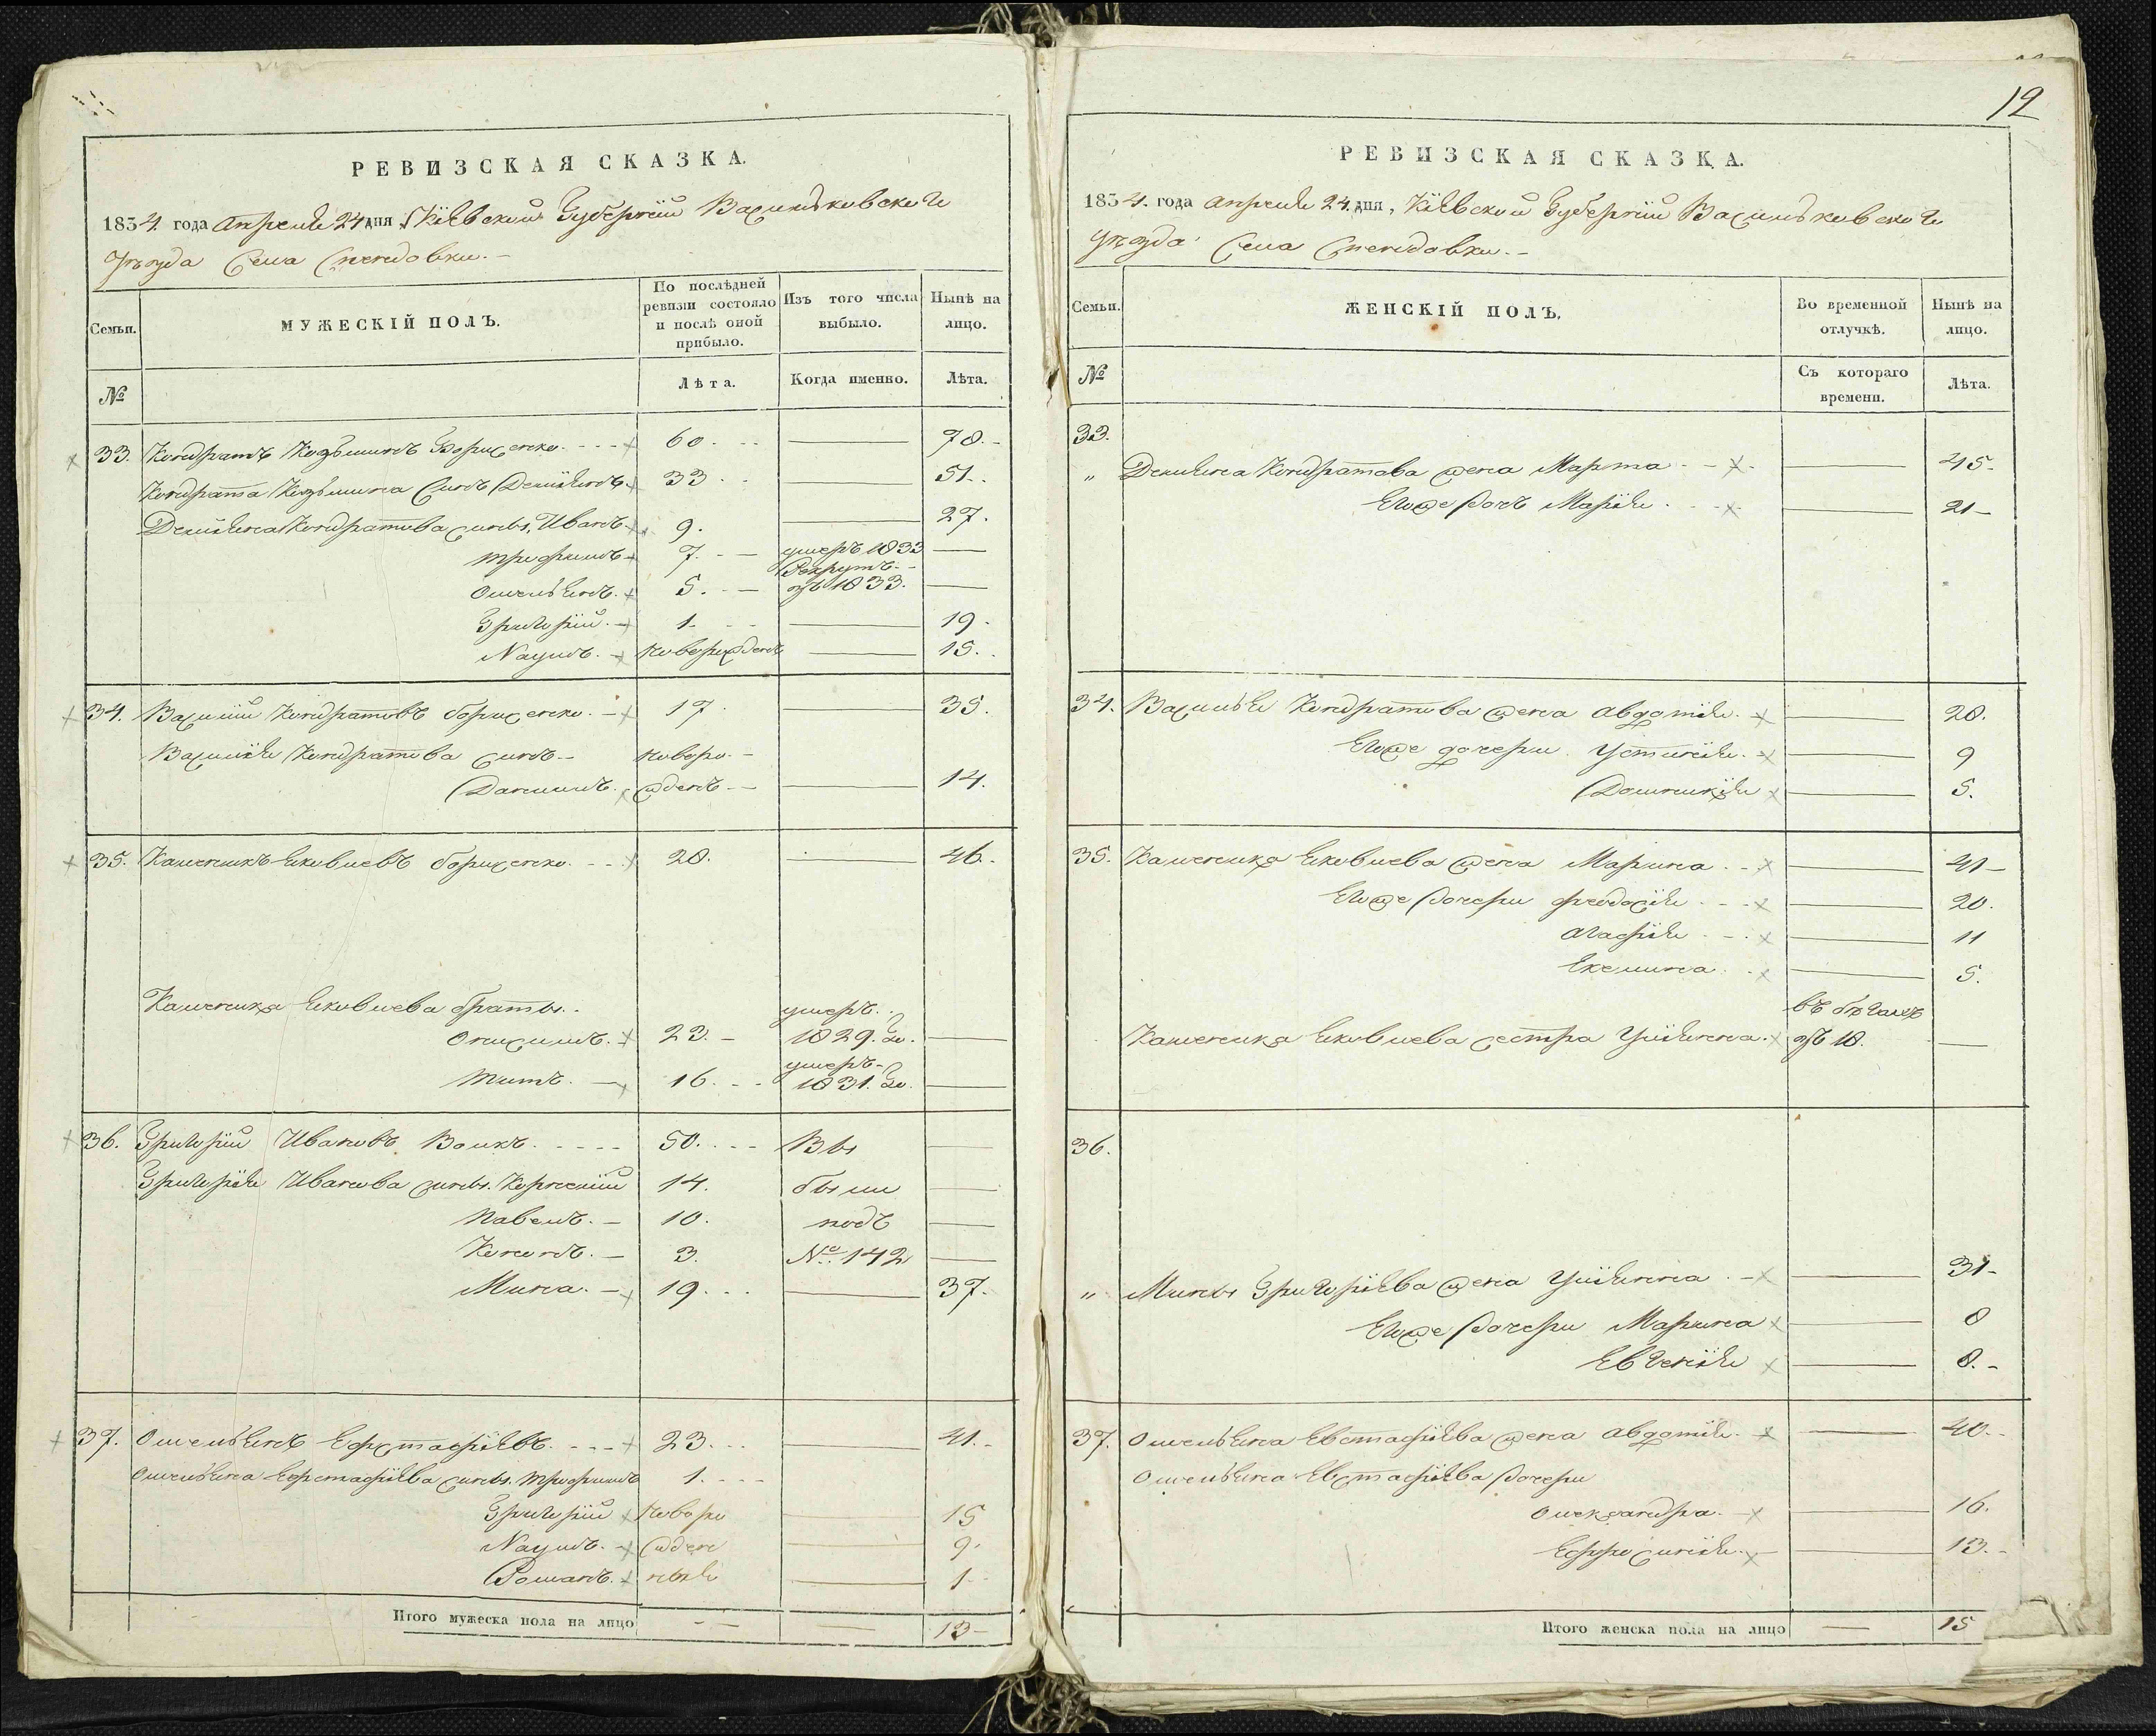 РЕВИЗСКАЯ СКАЗКА.
1834. года Апреля 24 дня, Кіевской Губерніи Васильковскаго
Уѣзда Села
Семьи.
МУЖЕСКІЙ ПОЛЪ.
По послѣдней ревизіи состояло и послѣ оной прибыло.
Изъ того числа выбыло.
Нынѣ на лицо.
№
Лѣта.
Когда именно.
Лѣта.
33. Кондратъ Козьминъ Борисенко. 60. 78.
Кондрата Козьмина Сынъ Деміянъ 33 51.
Деміяна Кондратова сыны, Иванъ 9. 27.
Трофимъ 7. умеръ 1833
Омельянъ. 5. Рекрутъ съ 1833.
Григорій. 1. 19.
Наумъ. новорожденъ 15.
34. Василій Кондратовъ борисенко. 17 35.
Василія Кондратова сынъ новоро
Данило. жденъ 14.
35. Каленикъ Яковлевъ борисенко. 28. 46.
Каленика Яковлева браты.
Онисимъ. 23. умеръ. 1829. Го.
Титъ. 16. умеръ 1831. Го.
36. Григорій Ивановъ Волкъ. 50. Вы
Григорія Иванова сыны. Корнилій 14. были
Павелъ. 10. подъ
Кононъ. 3. № 142
Мина. 19. 37.
37. Омельянъ Ефстафіевъ. 23. 41.
Омельяна Ефстафіева сыны. Трофимъ 1.
Григорій Новоро 15
Наумъ. жден 9.
Романъ. ныя 1
Итого мужеска пола на лицо 13
12
РЕВИЗСКАЯ СКАЗКА.
1834. года Апреля 24. дня, Кіевской Губерніи Васильковскаго
Уѣзда Села
Семьи.
ЖЕНСКІЙ ПОЛЪ.
Во временной отлучкѣ.
Нынѣ на лицо.
№
Съ котораго времени.
Лѣта.
33.
" Деміяна Кондратова жена Марта 45
Егоже дочь Марія 21
34. Василія Кондратова жена Авдотія. 28.
Егоже дочери. Устинія. 9
Домникія 5.
35. Каленика Яковлева жена Марина 41
Егоже дочери феодосія 20.
Агафія 11
Екелина. 5.
Каленика Яковлева сестра Уліянна. въ бѣгахъ съ 18.
36.
" Мины Григоріева жена Уліянна. 31
Егоже дочери Марина 8
Евгенія 8.
37. Омельяна Евстафіева жена Авдотія. 40.
Омельяна Евстафіева дочери
Олександра. 16.
Ефросинія. 13.
Итого женска пола на лицо 15